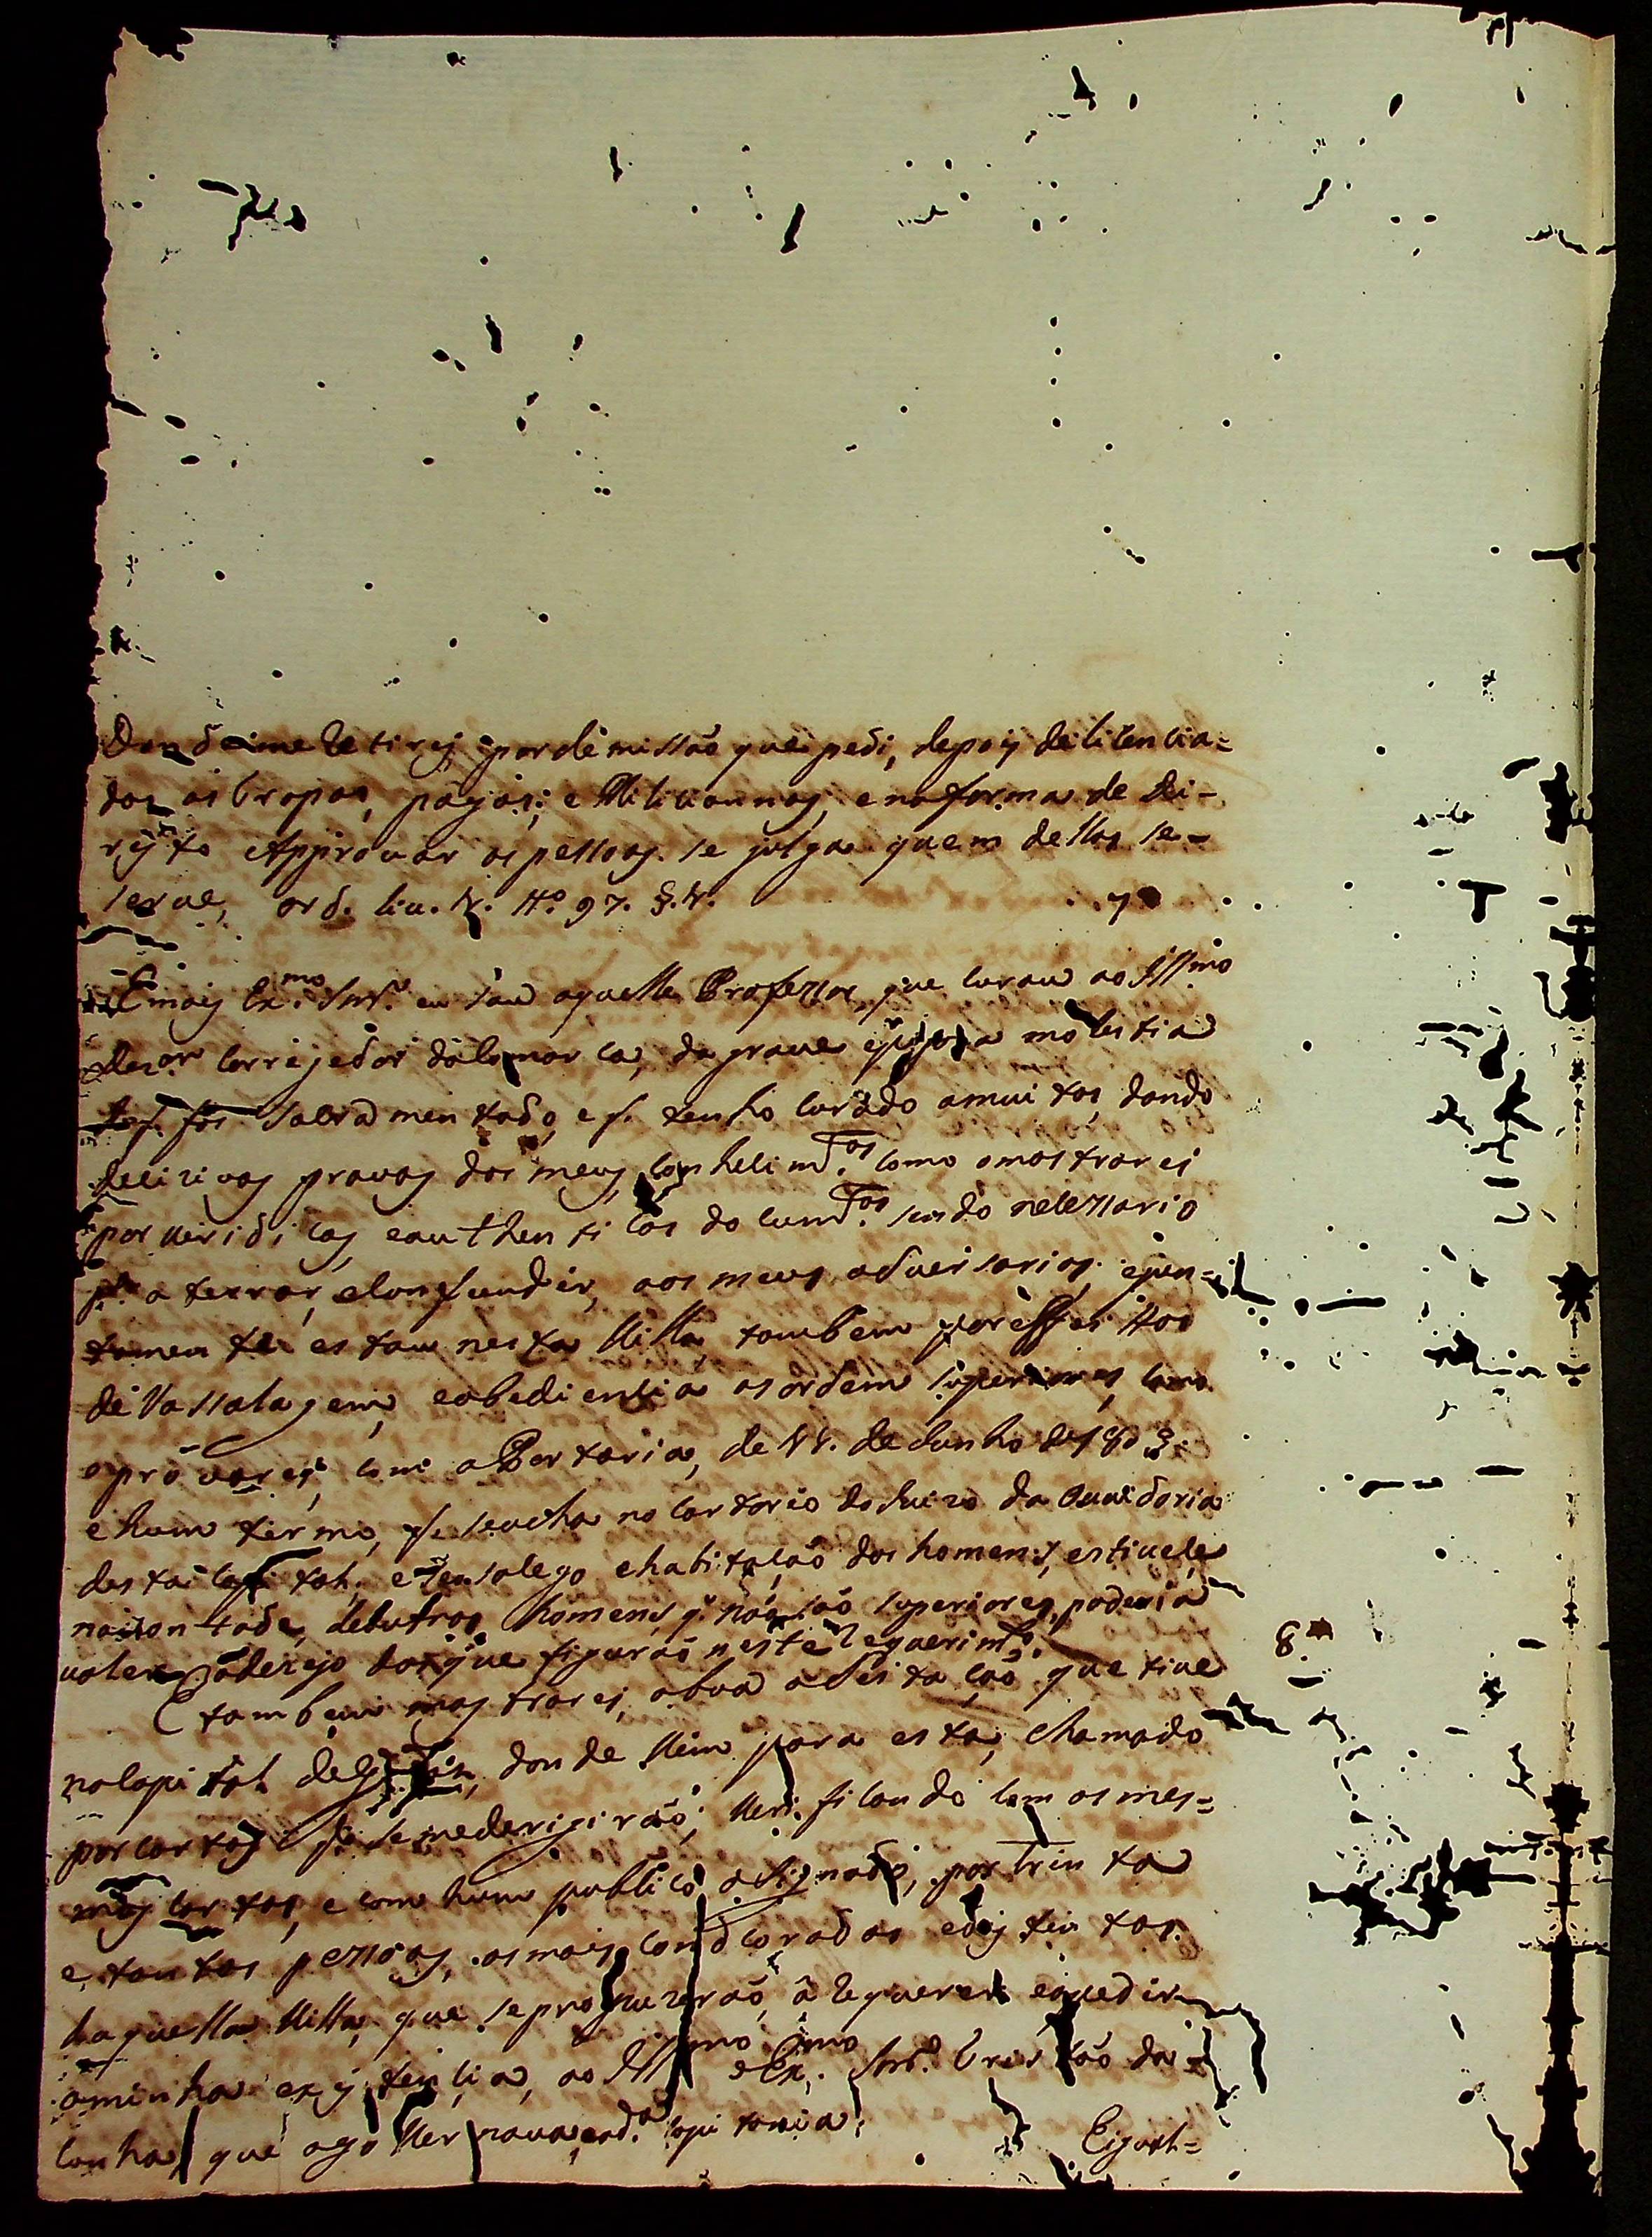 Donde me Retirej por demissão que pedi, depoiz de licencia=
dos as tropas, págas; e Milicianas, e na forma de Di-
rejto Approvar as pessoas se julga quem dellas se
serve, ord. liv. 4. tt.º 97. §. 4. 7
E mais Ex.mo Snr.' eu sou aquelle Professor, que curou ao Ill.mo
Dez.or Corregedor da Comarca, da grave molestia
foi Sacramentado, e q. tenho curado a muitos, dando
decizivas provas dos meus conhecim.tos como o mostrarei
por veridicas, e authenticos docum.tos sendo necessario
p.a aterrar, e confundir, aos meus adversarios; e jun-
tamente estou nesta Villa, tambem por effeitos
de Vassalagem, e obediencia as ordens superiores, como
o próvarej, com a Portaria, de 14. de Junho de 1803.
e hum termo, q. se acha no Cartorio do Juizo da Ouvidoria
desta Capital; e se o socego e habitação dos homens, estivece
na vontade, de outros homens, q. não são superiores, poderia
valer o dezejo dos que figurão neste Requerim.to. 8
E tambem mostrarej, a boa aceitação que tive
na Capital de donde Vim para esta, chamado
por cartas q. se me derigirão; Verificando com as mes=
mas cartas, e com hum publico assignado, por trinta
e tantas pessoas, as mais condecoradas e distintas
daquella Villa, que se propuzerão, a requerer e a pedir
a minha existencia, ao Ill.mo e Ex.mo Snr.' Tristão da
Cunha, que a governava, a d.a Capitania.
Eigual=